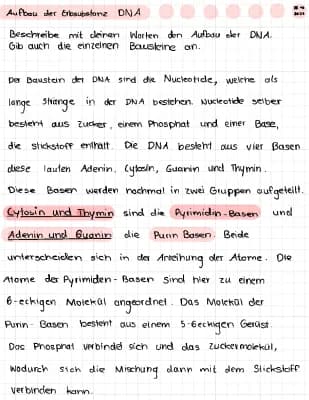 Aufbau der Erbsubstanz DNA
Beschreibe mit deinen Worten den Aufbau der DNA.
Gib auch die einzelnen Bausteine an.
Der Baustein der DNA sind die Nucleotide, welche als
lange Stränge in der DNA bestehen. Nucleotide selber
besteht aus Zucker, einem Phosphat und einer Base,
die Stickstoff enthält. Die DNA besteht aus vier Basen
diese lauten Adenin, Cytosin, Guanin und Thymin.
Diese Basen werden nochmal in zwei Gruppen aufgeteilt.
Cytosin und Thymin sind die Pyrimidin-Basen und
Adenin und Guanin die Purin Basen. Beide
unterscheiden sich in der Anreihung der Atome. Die
Atome der Pyrimiden-Basen sind hier zu einem
6-eckigen Molekül angeordnet. Das Molekül der
Purin-Basen besteht aus einem 5-6eckigen Gerüst.
Das Phosphat verbindet sich und das Zuckermolekül,
wodurch sich die Mischung dann mit dem Stickstoff
verbinden kann.